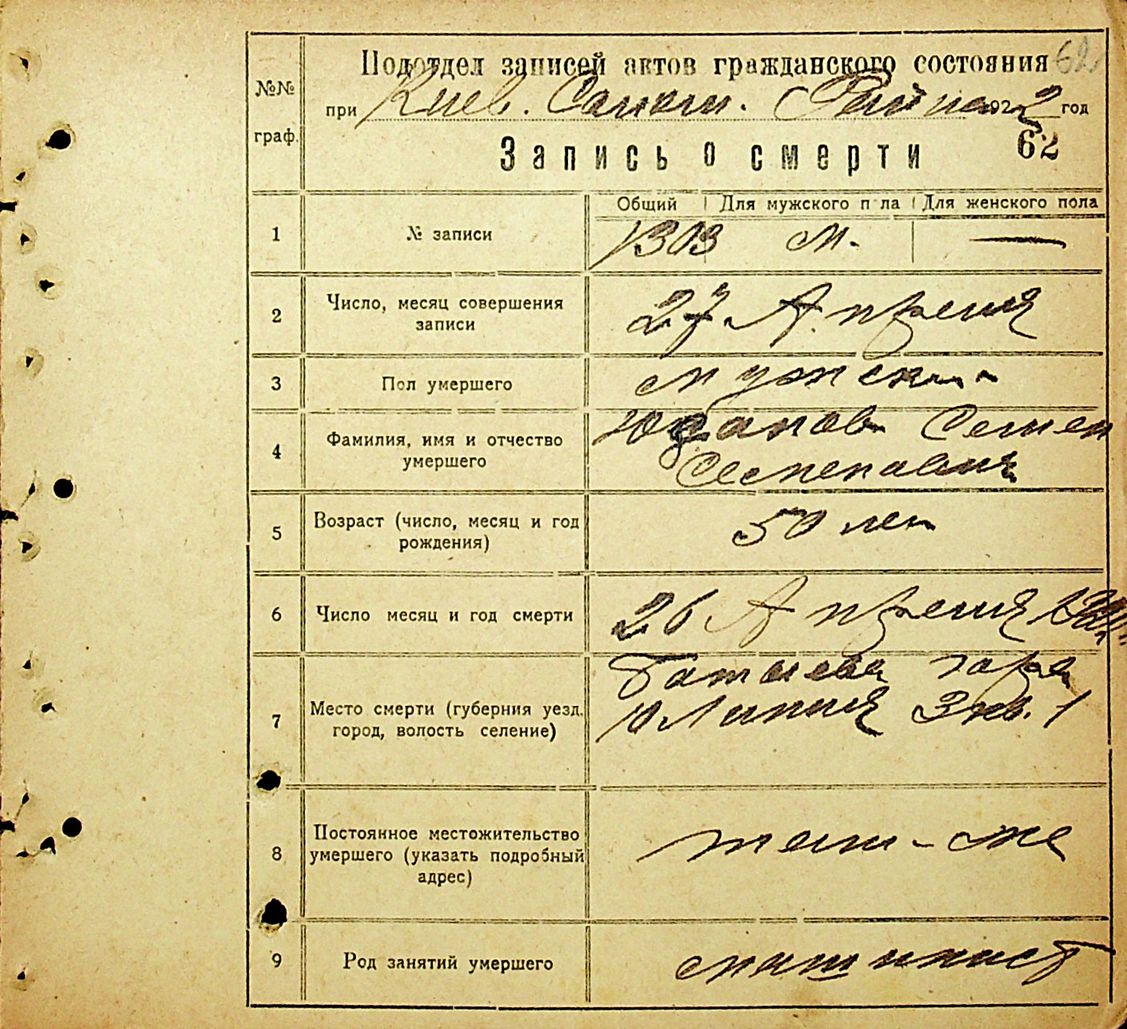 62
Подотдел записей актов гражданского состояния
№№ граф.
при Киев. 1922 год
62
Запись о смерти
Общий Для мужского пола Для женского пола
1 № записи 1303 м. —
2 Число, месяц совершения записи 27 Апреля
3 Пол умершего мужск.
4 Фамилия, имя и отчество умершего Семен
Семенович
5 Возраст (число, месяц и год рождения) 50 лет
6 Число месяц и год смерти 26 Апреля
7 Место смерти (губерния уезд. город, волость селение) Батыева гора
10 Линия 3 кв. 1
8 Постоянное местожительство умершего (указать подробный адрес) там-же
9 Род занятий умершего машинист